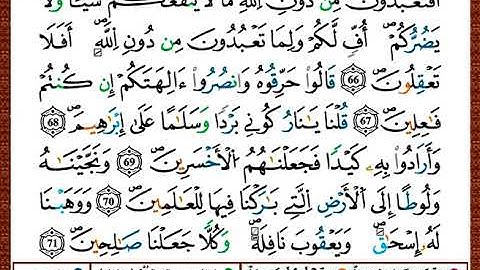 أَفَتَعْبُدُونَ مِن دُونِ اللَّهِ مَا لَا يَنفَعُكُمْ شَيْئًا وَلَا
يَضُرُّكُمْ أُفٍّ لَّكُمْ وَلِمَا تَعْبُدُونَ مِن دُونِ اللَّهِ أَفَلَا
تَعْقِلُونَ 66 قَالُوا حَرِّقُوهُ وَانصُرُوا ءَالِهَتَكُمْ إِن كُنتُمْ
فَٰعِلِينَ 67 قُلْنَا يَٰنَارُ كُونِي بَرْدًا وَسَلَٰمًا عَلَىٰ إِبْرَٰهِيمَ 68
وَأَرَادُوا بِهِۦ كَيْدًا فَجَعَلْنَٰهُمُ الْأَخْسَرِينَ 69 وَنَجَّيْنَٰهُ
وَلُوطًا إِلَى الْأَرْضِ الَّتِي بَٰرَكْنَا فِيهَا لِلْعَٰلَمِينَ 70 وَوَهَبْنَا
لَهُۥ إِسْحَٰقَ وَيَعْقُوبَ نَافِلَةً وَكُلًّا جَعَلْنَا صَٰلِحِينَ 71